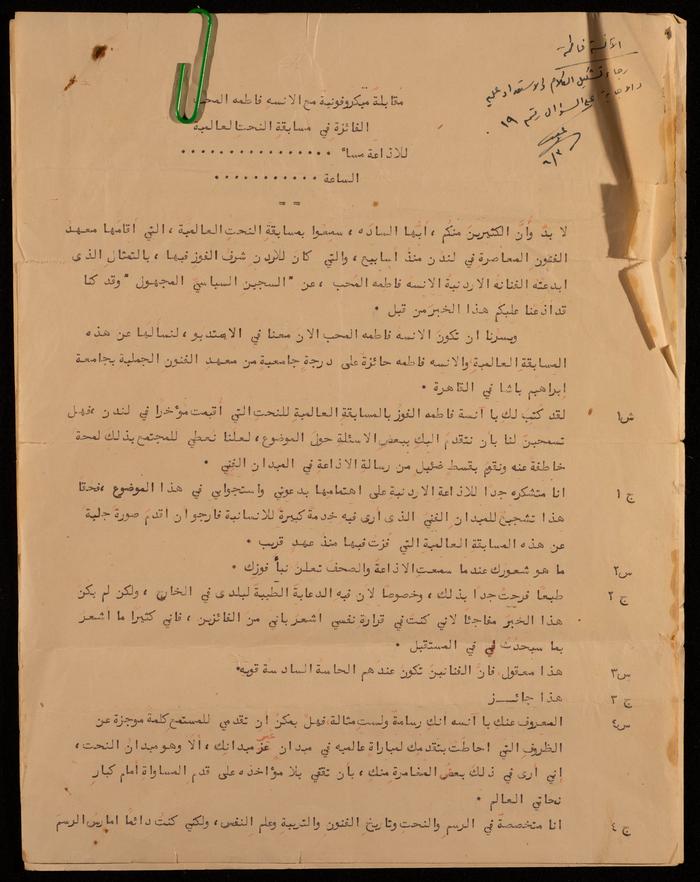 الآنسة فاطمة
رجاء تشكيل الكلام والاستعداد عليه
والاجابة على السؤال رقم ١٩
مقابلة ميكروفونية مع الانسه فاطمه المحب
الفائزة في مسابقة النحت العالمية
للاذاعة مساءً ................
الساعة ...........
= =
لا بدّ وانّ الكثيرين منكم ، ايها الساده ، سمعوا بمسابقة النحت العالمية ، التي اقامها معهد
الفنون المعاصرة في لندن منذ اسابيح ، والتي كان للاردن شرف الفوز فيها ، بالتمثال الذى
ابدعته الفنانه الاردنية الانسه فاطمه المحب ، عن " السجين السياسي المجهول " وقد كنا
قد اذعنا عليكم هذا الخبر من قبل .
ويسرنا ان تكون الانسه فاطمه المحب الان معنا في الاستديو ، لنسألها عن هذه
المسابقة العالمية والانسه فاطمه حائزة على درجة جامعية من معهد الفنون الجملية بجامعة
ابراهيم باشا في القاهرة .
س١ لقد كتب لك يا آنسة فاطمه الفوز بالمسابقة العالمية للنحت التي اقيمت مؤخرا في لندن ، فهل
تسمحين لنا بان نتقدم اليك ببعض الاسئلة حول الموضوع ، لعلنا نعطي للمجتمع بذلك لمحة
خاطفة عنه ونقوم بقسط ضئيل من رسالة الاذاعة في الميدان الفني .
ج ١ انا متشكره جدا للاذاعة الاردنية على اهتمامها بدعوتي واستجوابي في هذا الموضوع ، فحقا
هذا تشجيع للميدان الفني الذى أرى فيه خدمة كبيرة للانسانية فارجو ان اقدم صورة جلية
عن هذه المسابقة العالمية التي فزت فيها منذ عهد قريب .
س٢ ما هو شعورك عندما سمعت الاذاعة والصحف تعلن نبأ فوزك .
ج ٢ طبعا فرحت جدا بذلك ، وخصوصا لان فيه الدعاية الطيبة لبلدى في الخارج ، ولكن لم يكن
هذا الخبر مفاجئا لاني كنت في قرارة نفسي اشعر باني من الفائزين ، فاني كثيرا ما اشعر
بما سيحدث لي في المستقبل .
س٣ هذا معقول فانّ الفنانين تكون عندهم الحاسة السادسة قويه.
ج ٣ هذا جائــــز
س٤ المعروف عنك يا آنسه انك رسامة ولست مثالة فهل يمكن ان تقدمي للمستمع كلمة موجزة عن
الظروف التي احاطت بتقدمك لمباراة عالميه في ميدان غير ميدانك ، الا وهو ميدان النحت ،
اني أرى في ذلك بعض المغامرة منك ، بأن تقفي بلا مؤاخذه على قدم المساواة أمام كبار
نحاتي العالم .
ج ٤ انا متخصصة في الرسم والنحت وتاريخ الفنون والتربية وعلم النفس ، ولكني كنت دائما امارس الرسم